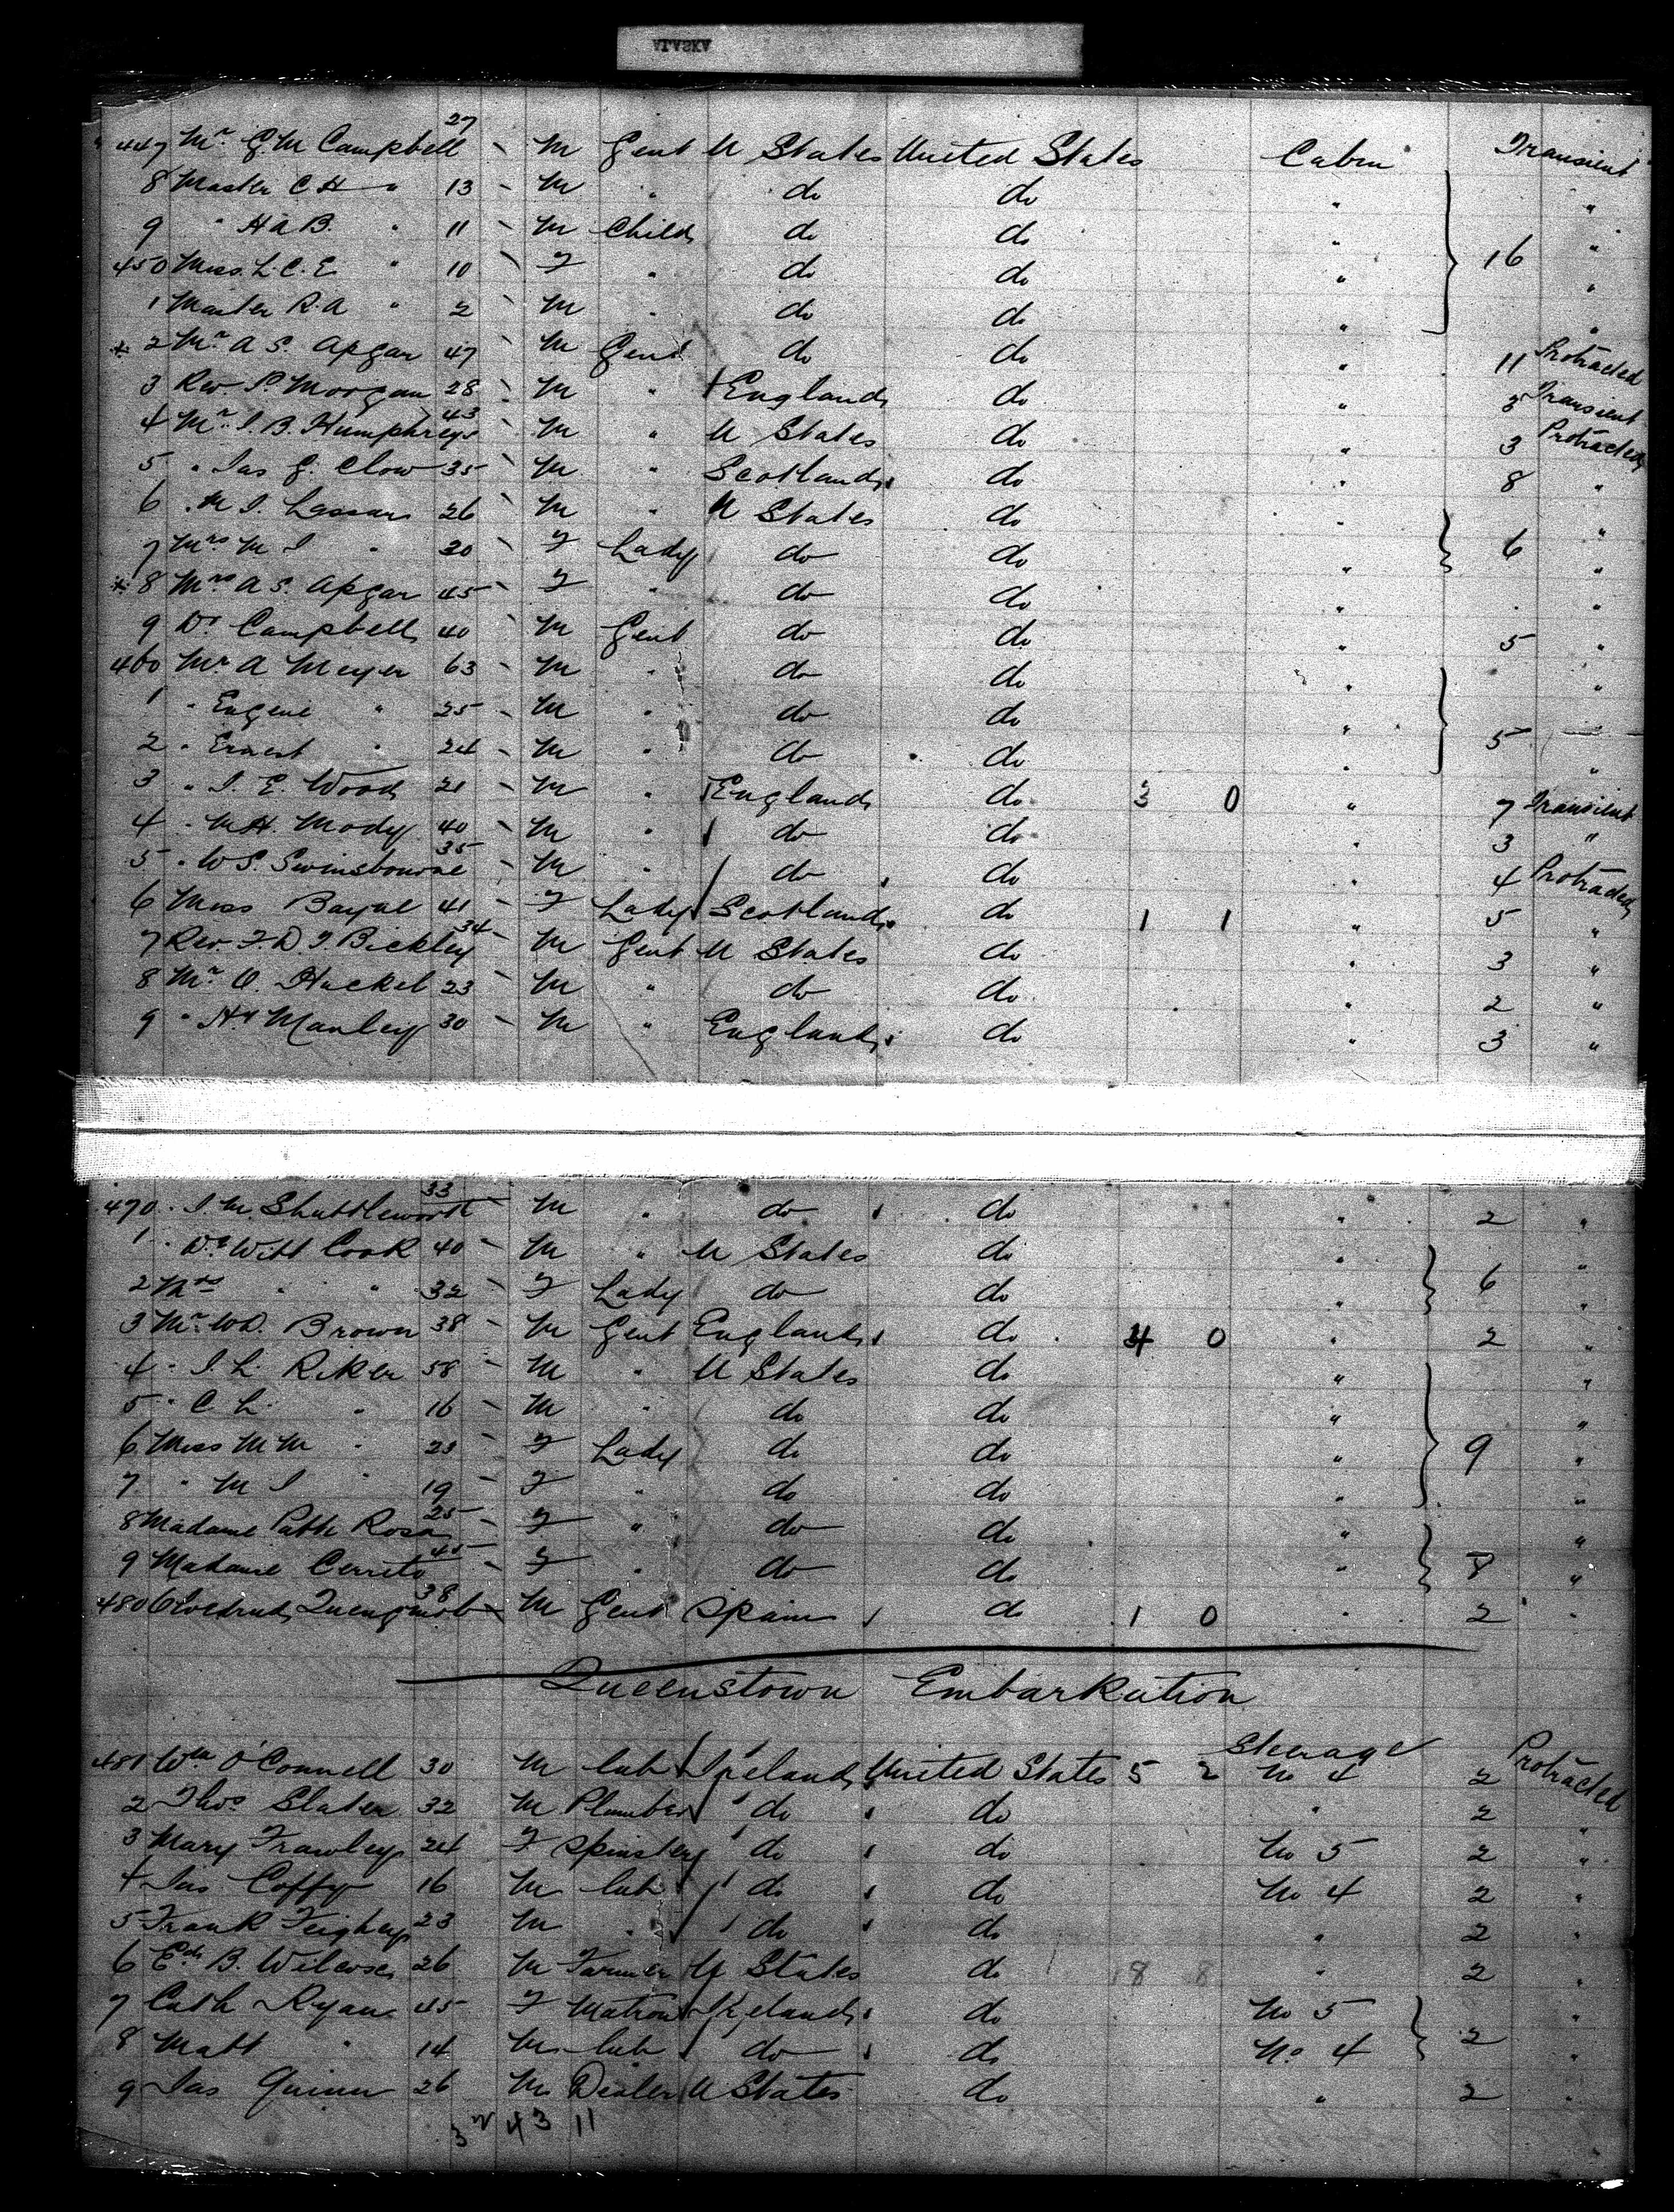 447 Mr G. M Campbell 27 - M Gent U States United States Cabin Transient
8 Master C H " 13 - M " do do " "
9 " H a B. " 11 - M Child do do " "
450 Miss L. C. E. " 10 - F " do do " 16 "
1 Master R. A " 2 - M " do do " "
* 2 Mr A S. Apgar 47 M Gent do do " 11 Protracted
3 Rev. P. Morgan 28 - M " England do " 3 Transient
4 Mr I. B. Humphreys 43 - M " U States do " 3 Protracted
5 " Jas G. Clow 35 - M " Scotland do " 8 "
6 " M I. 26 - M " U States do " "
7 Mrs M I " 30 - F Lady do do " 6 "
* 8 Mrs A S. Apgar 45 - F " do do " "
9 Dr Campbell 40 - M Gent do do " 5 "
460 Mr A Meyer 63 - M " do do " "
1 " Eugene " 25 - M " do do "
2 " Ernest " 24 - M " do do " 5 "
3 " I. E. Wood 21 - M " England do 3 0 " 7 Transient
4 " M H. Mody 40 - M " do do " 3 "
5 " W S. Swinsbourne 35 - M " do do " 4 Protracted
6 Miss Bayne 41 - F Lady Scotland do 1 1 " 5 "
7 Rev. F. D. T. Bickley 34 - M Gent U States do " 3 "
8 Mr O. Huckel 23 - M " do do " 2 "
9 " Hy Manley 30 - M " England do " 3 "
470 " J. M. Shuttleworth 33 - M " do do " 2 "
1 " De Witt Cook 40 - M " U States do " "
2 Mrs " " 32 - F Lady do do " 6 "
3 Mr W D. Brown 38 - M Gent England do 4 0 " 2 "
4 " J. L. Riker 58 - M " U States do " "
5 " C L. " 16 - M " do do " "
6 Miss M M " 23 - F Lady do do " 9 "
7 " M J " 19 - F " do do " "
8 Madame Patti Rosa 25 - F " do do " "
9 Madame Cerrito 45 - F " do do " 8 "
480 38 M Gent Spain do 1 0 " 2 "
Queenstown Embarkation
481 Wm O'Connell 30 M lab Ireland United States 5 2 Steerage No 4 2 Protracted
2 Thos Slater 32 M Plumber do do " 2 "
3 Mary Frawley 24 F Spinster do do No 5 2 "
4 Jas Coffy 16 M lab do do No 4 2 "
5 Frank Feighey 23 M " do do " 2 "
6 Ed. B. Wilcox 26 M Farmer U States do 8 8 " 2 "
7 Cath Ryan 45 F Matron Ireland do No 5 "
8 Matt " 14 M lab do do No 4 2 "
9 Jas Quinn 26 M Dealer U States do " 2 "
43 11